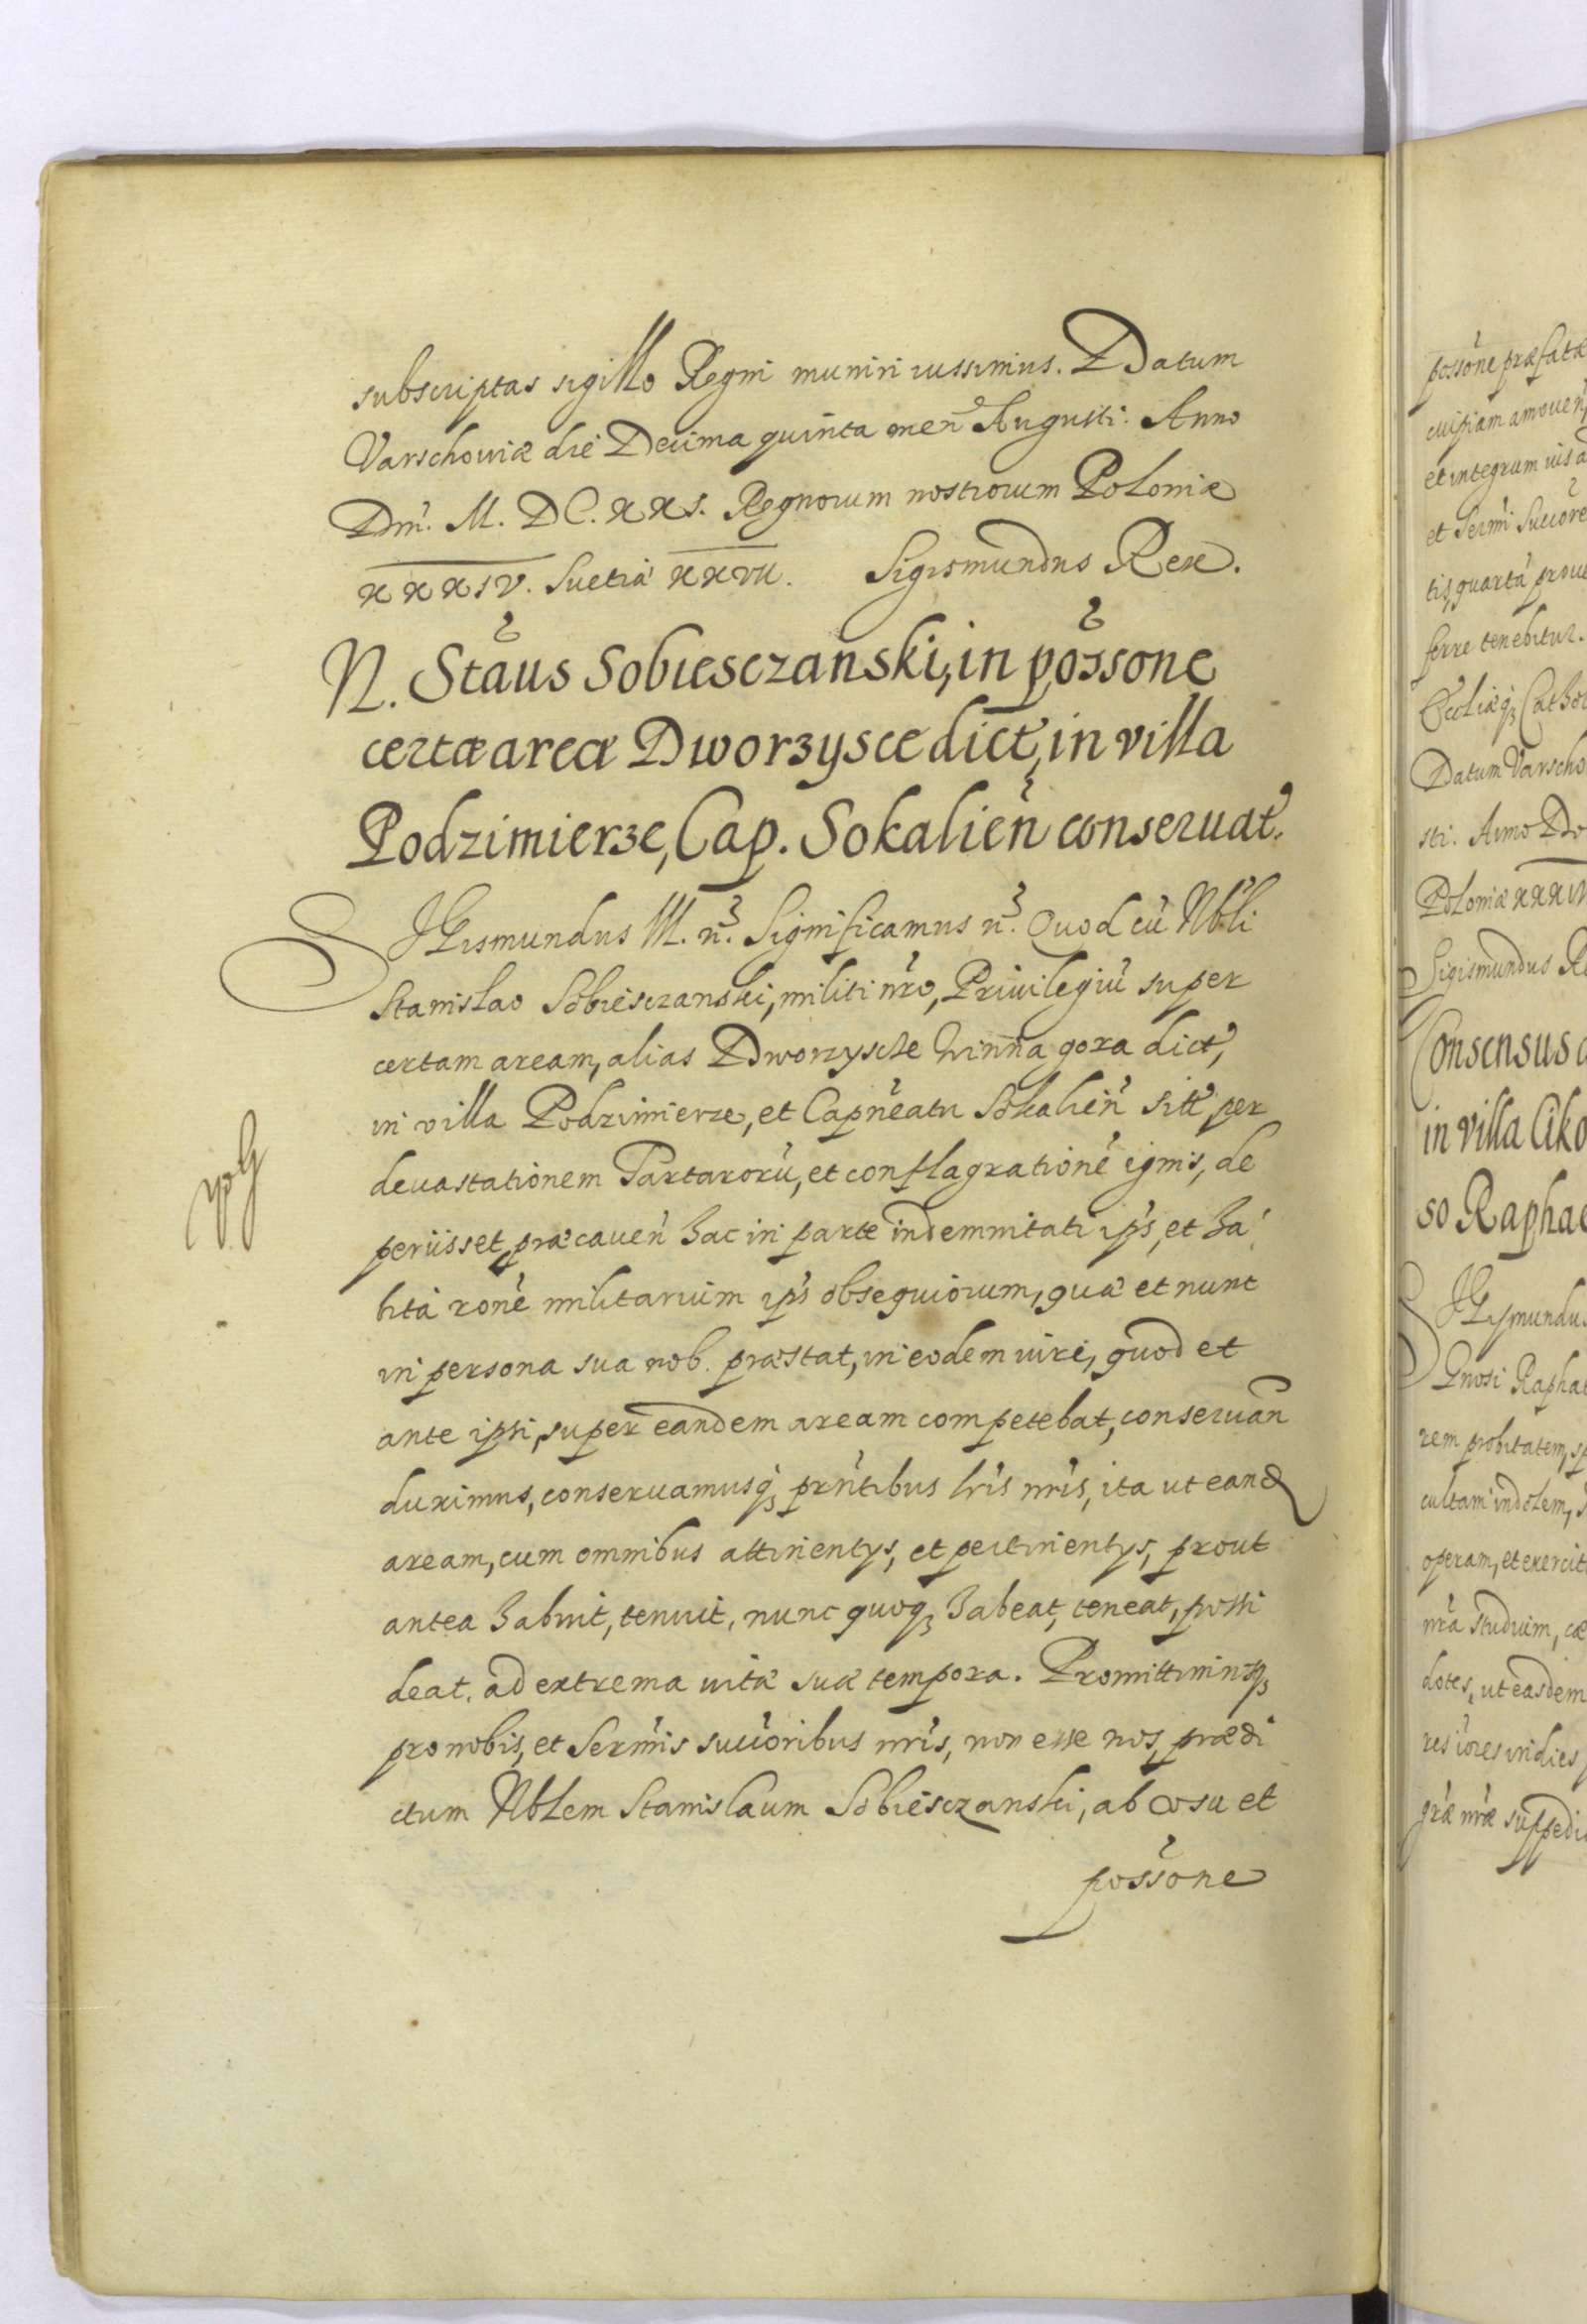 subscriptas sigillo Regni muniri iussimus. Datum
Varschoviæ die Decima quinta men̄ Augusti. Anno
Dni. M. DC. XXI. Regnorum nostrorum Poloniæ
XXXIV. Suetiæ XXVII. Sigismundus Rex.
N. Stãus Sobiesczanski, in põssone
certæ areæ Dworzysce dict, in villa
Podzimierze, Cap. Sokalień conseruat.
SIGismundus III. ñ. Significamus ñ. Quod cũ Nbli
Stanislao Sobiesczanski, militi nro, Priuilegiũ super
certam aream, alias Dworzyscze Winna gora dict,
in villa Podzimierze, et Capneatu Sokalień sitt per
deuastationem Tartarorũ, et conflagrationẽ ignis, de
periisset, præcaueń hac in parte indemnitati ips, et ha
bita ronẽ militarium ips obsequiorum, quæ et nunc
in persona sua nob. præstat, in eodem iure, quod et
ante ipsi, super eandem aream competebat, conseruań
duximus, conseruamusq3 prntibus lris nris, ita ut eand
aream, cum omnibus attinentys, et pertinentys, prout
antea habuit, tenuit, nunc quoq3 habeat, teneat, possi
deat, ad extrema uitæ suæ tempora. Promittimusq3
pro nobis, et Sermis succoribus nris, non esse nos, prædi
ctum Nblem Stanislaum Sobiesczanski, ab usu et
possone
possone præfatæ
cuipiam amoueń
et integrum ius a
et Sermi Succore
tis, quartã proue
ferre tenebitur.
Eccliæq3 Cathol
Datum Varscho
sti. Anno Do
Poloniæ XXXIV
Sigismundus Re
Consensus
in villa Ciko
so Raphae
SIGismundus
Gnosi Raphae
rem probitatem, sp
cultam indolem,
operam, et exercit
nra studium, cæ
dotes, ut easdem
res iores indies
græ nræ suppedi